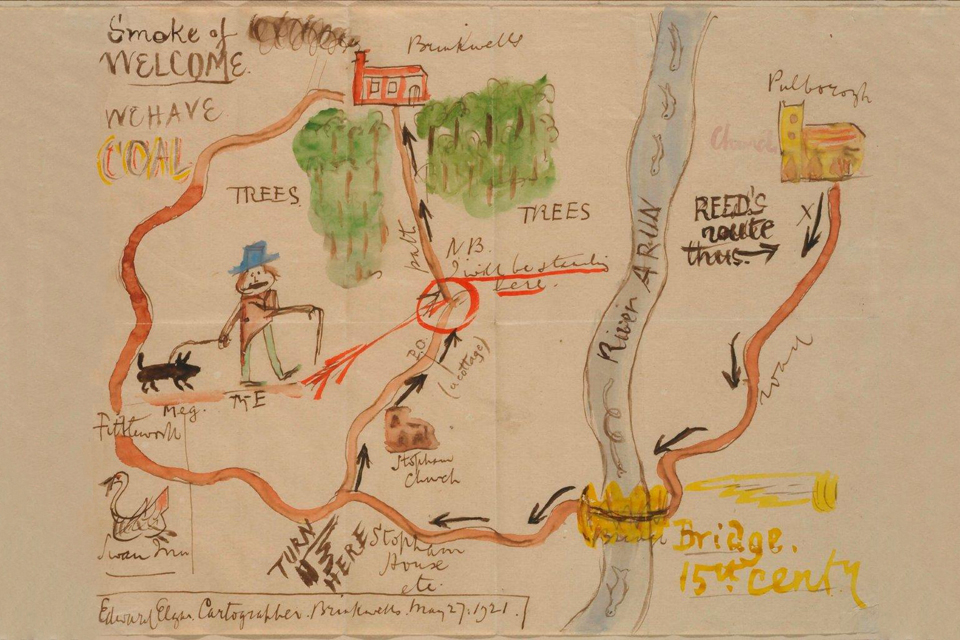 Smoke of
WELCOME.
WE HAVE
COAL
Brinkwells
Pulborough
Church
TREES
TREES
REED'S
route
thus.
X
path
N.B.
I will be standing
here.
River ARUN
P.O.
(a cottage)
road
Meg.
ME
Fittleworth
Stopham
Church
Swan Inn
TURN
HERE
Stopham
House
etc
Bridge.
15th centy
Edward Elgar. Cartographer. Brinkwells. May 27: 1921.